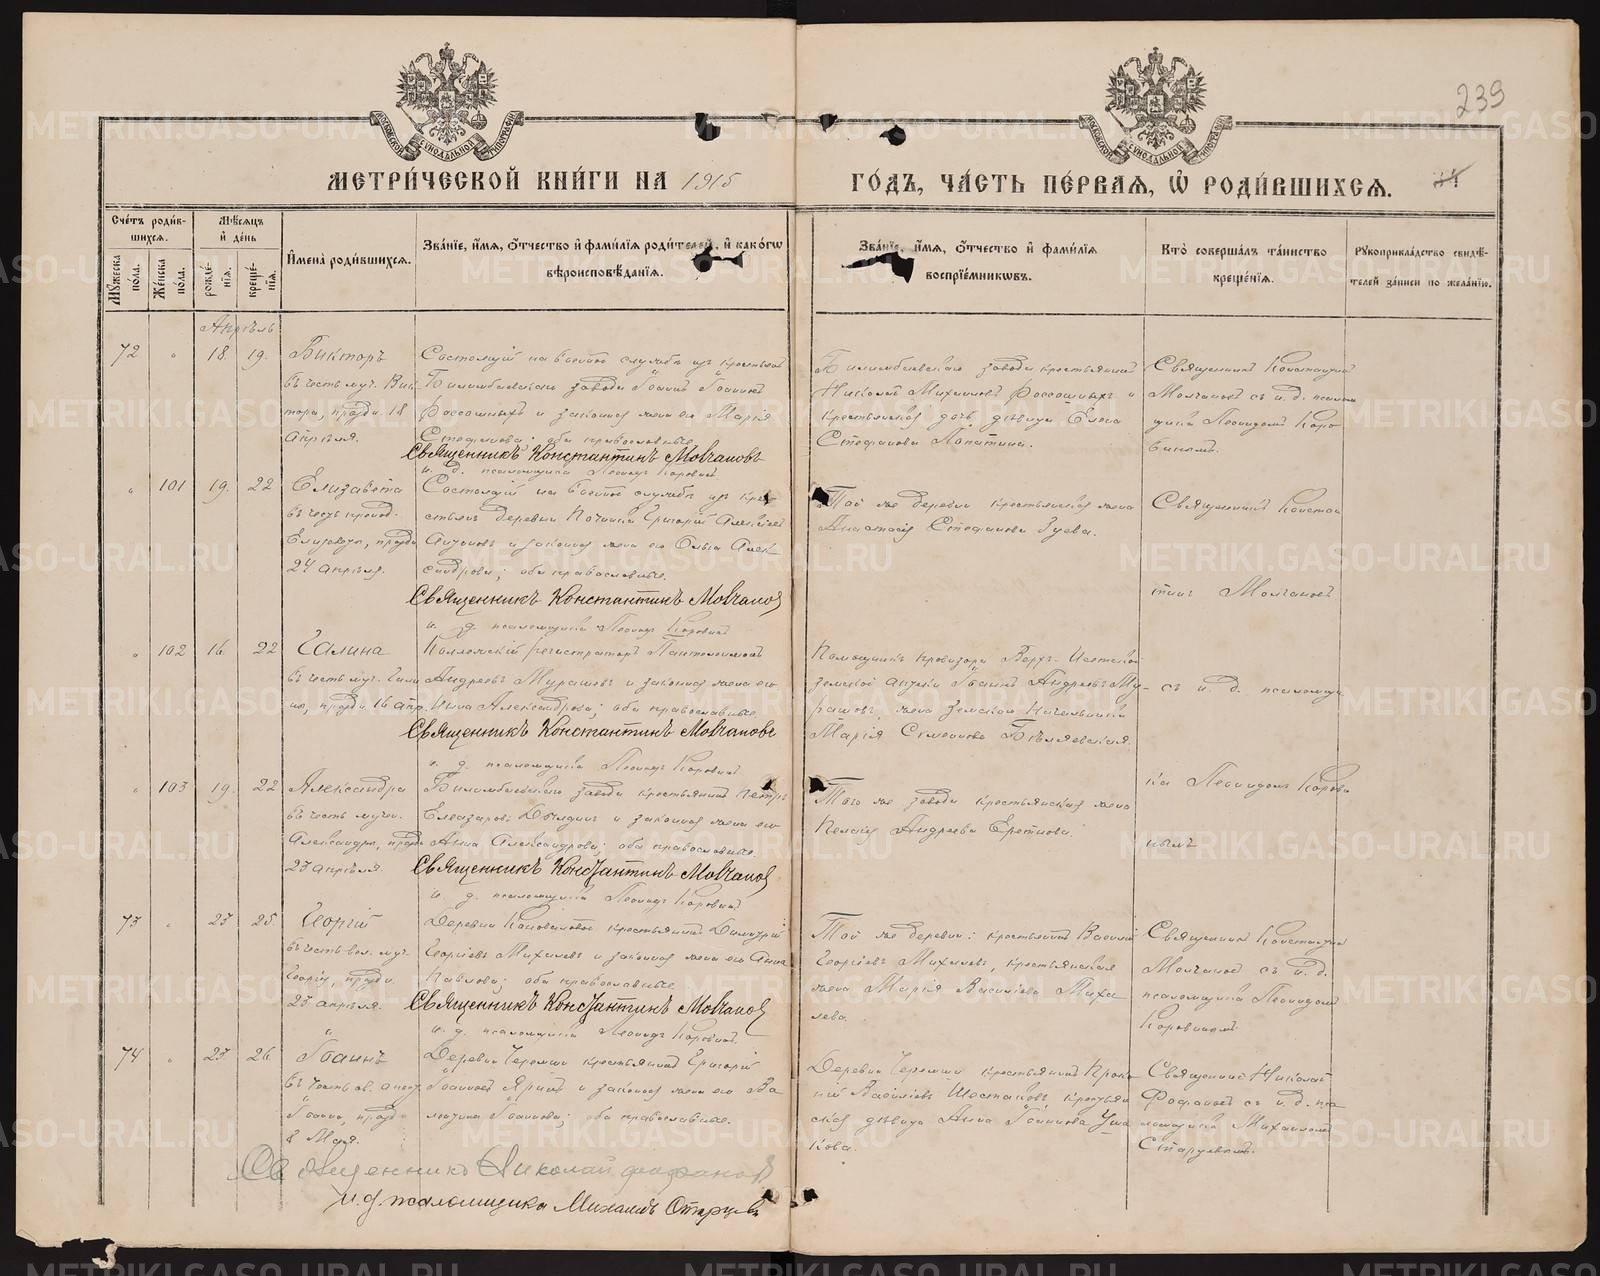 239
МЕТРИ́ЧЕСКОЙ КНИ́ГИ НА 1915
ГО́ДЪ, ЧА́СТЬ ПЕ́РВАЯ, Ѡ҆ РОДИ́ВШИХСЯ.
Сче́тъ роди́в-
шихся.
Мѣ́сяцъ
и҆ де́нь
Му́жеска по́ла.
Же́нска по́ла.
рожде́нїя.
креще́нїя.
И҆мена̀ роди́вшихся.
Зва́нїе, и҆́мя, ѻ҆́тчество и҆ фами́лїя роди́телей, и҆ како́гѡ
вѣроисповѣ́данїя.
Зва́нїе, и҆́мя, ѻ҆́тчество и҆ фами́лїя
воспрїе́мникѡвъ.
Кто̀ соверша́лъ та́инство
креще́нїя.
Рукоприкла́дство свидѣ́-
телей за́писи по жела́нїю.
Апрѣль
72 " 18. 19. Викторъ
въ честь муч. Вик-
тора, празд. 18
апрѣля.
Состоящій на военной службѣ изъ крестьянъ
Билимбаевскаго завода Іоаннъ Іоанновъ
и законная жена его Марія
Стефанова; оба православные.
Священникъ Константинъ Молчановъ
и. д. псаломщика Леонидъ Коровинъ
Билимбаевскаго завода крестьянинъ
Николай Михаиловъ и
крестьянская дочь дѣвица Елена
Стефанова Лопатина.
Священникъ Константинъ
Молчановъ съ и. д. псалом
щика Леонидомъ Коро
винымъ.
" 101 19. 22 Елизавета
въ честь препод.
Елизаветы, празд.
24 апрѣля.
Состоящій на военной службѣ изъ кре
стьянъ деревни Починка Григорій Алексѣевъ
и законная жена его Ольга Алек
сандрова; оба православные.
Священникъ Константинъ Молчановъ
и. д. псаломщика Леонидъ Коровинъ
Той же деревни крестьянская жена
Анастасія Стефанова Зуева.
Священникъ Констан
тинъ Молчановъ
" 102 16. 22 Галина
въ честь муч. Гали
ны, празд. 16 апр.
Коллежскій регистраторъ Пантелеимонъ
Андреевъ Мурашовъ и законная жена его
Александрова; оба православные.
Священникъ Константинъ Молчановъ
и. д. псаломщика Леонидъ Коровинъ
Помощникъ провизора Верх-Исетской
земской аптеки Іоаннъ Андреевъ Му-
рашовъ, жена Земскаго Начальника
Марія Семенова Бѣляевская.
съ и. д. псаломщи
" 103 19. 22 Александра
въ честь мучен.
Александры, празд.
23 апрѣля.
Билимбаевскаго завода крестьянинъ Петръ
Елеазаровъ и законная жена его
Анна Александрова; оба православные.
Священникъ Константинъ Молчановъ
и. д. псаломщика Леонидъ Коровинъ
Того же завода крестьянская жена
Пелагія Андреева Еретнова.
ка Леонидомъ Корови
нымъ
73 " 23 25. Георгій
въ честь вел. муч.
Георгія, празд.
23 апрѣля.
Деревни Коноваловой крестьянинъ Димитрій
Георгіевъ Михалевъ и законная жена его Анна
Павлова; оба православные.
Священникъ Константинъ Молчановъ
и. д. псаломщика Леонидъ Коровинъ.
Той же деревни: крестьянинъ Василій
Георгіевъ Михалевъ, крестьянская
жена Марія Васильева Миха
лева.
Священникъ Константинъ
Молчановъ съ и. д.
псаломщика Леонидомъ
Коровинымъ
74 " 23 26. Іоаннъ
въ честь св. апост.
Іоанна, празд.
8 Мая.
Деревни Черемши крестьянинъ Григорій
Іоанновъ Яринъ и законная жена его Ва
лентина Іоаннова; оба православные.
Священникъ Николай Фофановъ
и. д. псаломщика Михаилъ Старцевъ
Деревни Черемши крестьянинъ Проко
пій Васильевъ Шестаковъ, крестьян
ская дѣвица Анна Іоаннова Уша
кова.
Священникъ Николай
Фофановъ съ и. д. пса
ломщика Михаиломъ
Старцевымъ.
METRIKI.GASO-URAL.RU